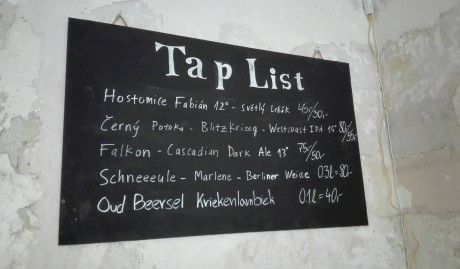 Tap List
Hostomice Fabián 12° - Světlý Ležák 45,-/30,-
Černý Potoka - Blitzkrieg - Westcoast IPA 15° 80/55,-
Falkon - Cascadian Dark Ale 13° 75/50,-
Schneeeule - Marlene - Berliner Weisse 0.3l=80,-
Oud Beersel Kriekenlambiek 0.1l=40,-